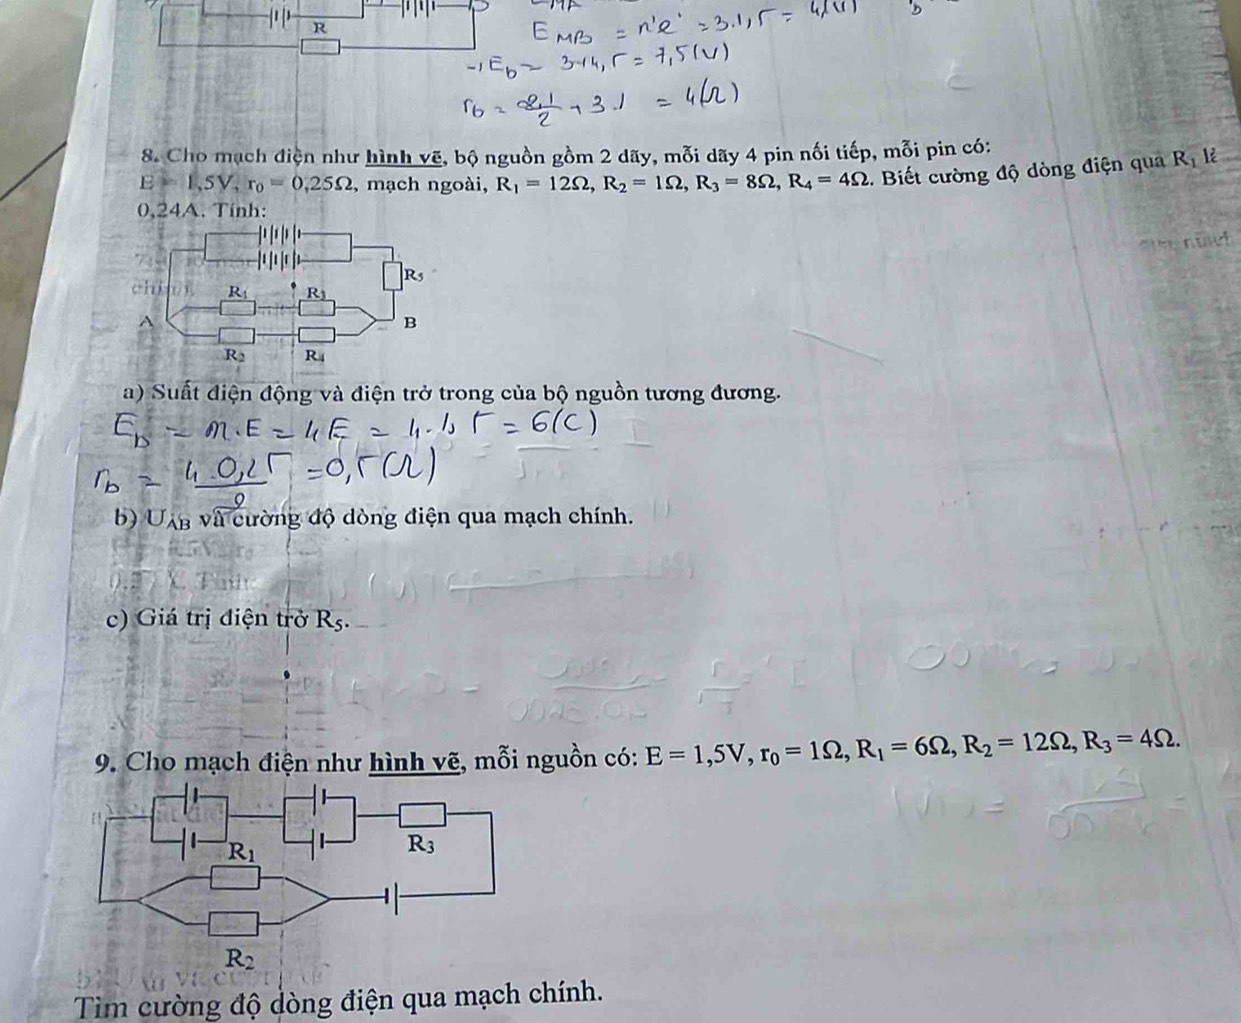 R
E MB = n'e' = 3.1,5 =
→ Eb = 3+4,5 = 7,5(V)
rb = 2.1/2 + 3.1 = 4(Ω)
8. Cho mạch điện như hình vẽ, bộ nguồn gồm 2 dãy, mỗi dãy 4 pin nối tiếp, mỗi pin có:
E = 1,5V, r₀ = 0,25Ω, mạch ngoài, R₁ = 12Ω, R₂ = 1Ω, R₃ = 8Ω, R₄ = 4Ω. Biết cường độ dòng điện qua R₁ là
0,24A. Tính:
R₅
R₁ R₃
A B
R₂ R₄
a) Suất điện động và điện trở trong của bộ nguồn tương đương.
Eb = m.E = 4E = 4.1,5 = 6(C)
rb = 4.0,25/2 = 0,5(Ω)
b) U_AB và cường độ dòng điện qua mạch chính.
c) Giá trị điện trở R₅.
9. Cho mạch điện như hình vẽ, mỗi nguồn có: E = 1,5V, r₀ = 1Ω, R₁ = 6Ω, R₂ = 12Ω, R₃ = 4Ω.
R₁ R₃
R₂
Tìm cường độ dòng điện qua mạch chính.